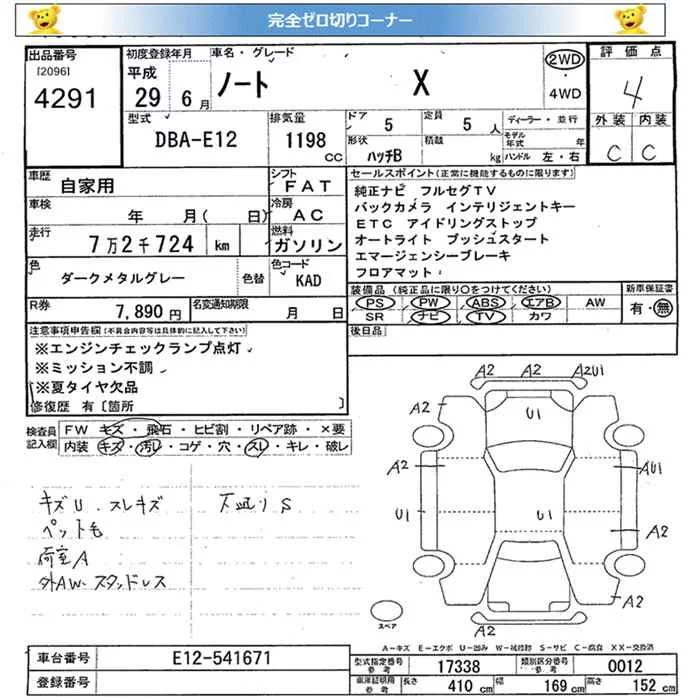 完全ゼロ切りコーナー
出品番号
[2096]
4291
初度登録年月
平成
29 6月
車名・グレード
ノート X
2WD
・
4WD
評価点
4
外装 内装
C C
型式
DBA-E12
排気量
1198
CC
ドア
5
定員
5 人
形状
ハッチB
積載
kg
ディーラー・並行
モデル年式 年
ハンドル 左・右
車歴
自家用
シフト
FAT
車検
年 月( 日)
冷房
AC
走行
7万2千724 km
燃料
ガソリン
色
ダークメタルグレー
色替
色コード
KAD
R券
7,890円
名変通知期限
月 日
セールスポイント(正常に機能するものに限ります)
純正ナビ フルセグTV
バックカメラ インテリジェントキー
ETC アイドリングストップ
オートライト プッシュスタート
エマージェンシーブレーキ
フロアマット
装備品(純正品に限り○をつけてください)
PS PW ABS エアB AW
SR ナビ TV カワ
新車保証書
有・無
後日品
注意事項申告欄(不具合内容等は具体的に記入して下さい)
※エンジンチェックランプ点灯
※ミッション不調
※夏タイヤ欠品
修復歴 有〔箇所 〕
検査員記入欄
FW キズ・飛石・ヒビ割・リペア跡・×要
内装 キズ・汚レ・コゲ・穴・スレ・キレ・破レ
キズU.スレキズ
ペット毛
荷室A
外AW.スタッドレス
下廻りS
A2 A2 A2U1
A2 U1 A2
A2 AU1
U1 U1 A2
A2
A2
スペア
A-キズ E-エクボ U-凹み W-補修跡 S-サビ C-腐食 XX-交換済
車台番号 E12-541671
登録番号
型式指定番号 参考 17338
類別区分番号 参考 0012
車庫証明用 参考 長さ 410 cm 幅 169 cm 高さ 152 cm